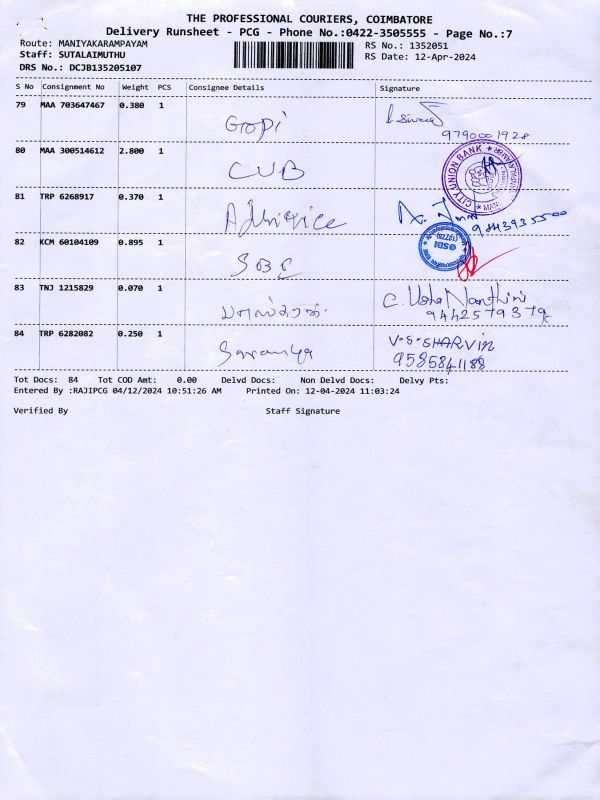 THE PROFESSIONAL COURIERS, COIMBATORE
Delivery Runsheet - PCG - Phone No.:0422-3505555 - Page No.:7
Route: MANIYAKARAMPAYAM RS No.: 1352051
Staff: SUTALAIMUTHU RS Date: 12-Apr-2024
DRS No.: DCJB135205107
S No Consignment No Weight PCS Consignee Details Signature
79 MAA 703647467 0.380 1
Gopi
9790001928
80 MAA 300514612 2.800 1
CUB
CITY UNION BANK
81 TRP 6268917 0.370 1
9843935500
82 KCM 60104109 0.895 1
SBI
83 TNJ 1215829 0.070 1
C. Usha Nanthini
84 TRP 6282082 0.250 1
V.S. SHARVIN
Saranya
9585841188
Tot Docs: 84 Tot COD Amt: 0.00 Delvd Docs: Non Delvd Docs: Delvy Pts:
Entered By :RAJIPCG 04/12/2024 10:51:26 AM Printed On: 12-04-2024 11:03:24
Verified By Staff Signature